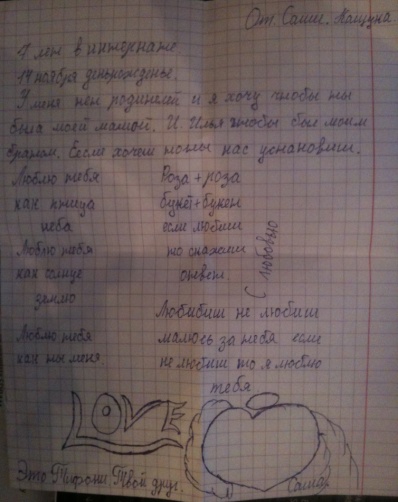 От Саши. Кащуна
7 лет в интернате
14 ноября деньрожденье.
У меня нен родителей и я хочу чтобы ты
была моей мамой. И. Илья чтобы был моим
братом. Еесле хочеш томы нас устоновиш.
Люблю тебя
как птица
неба
Люблю тебя
как солнце
землю
Люблю тебя
как ты меня.
Роза + роза
букет + букет
если любиш
то скажи
ответ
С любовью
Любибиш не любиш
малюсь за тебя если
не любиш то я люблю
тебя
LOVE
Это Тифони. Твой друг.
Саша